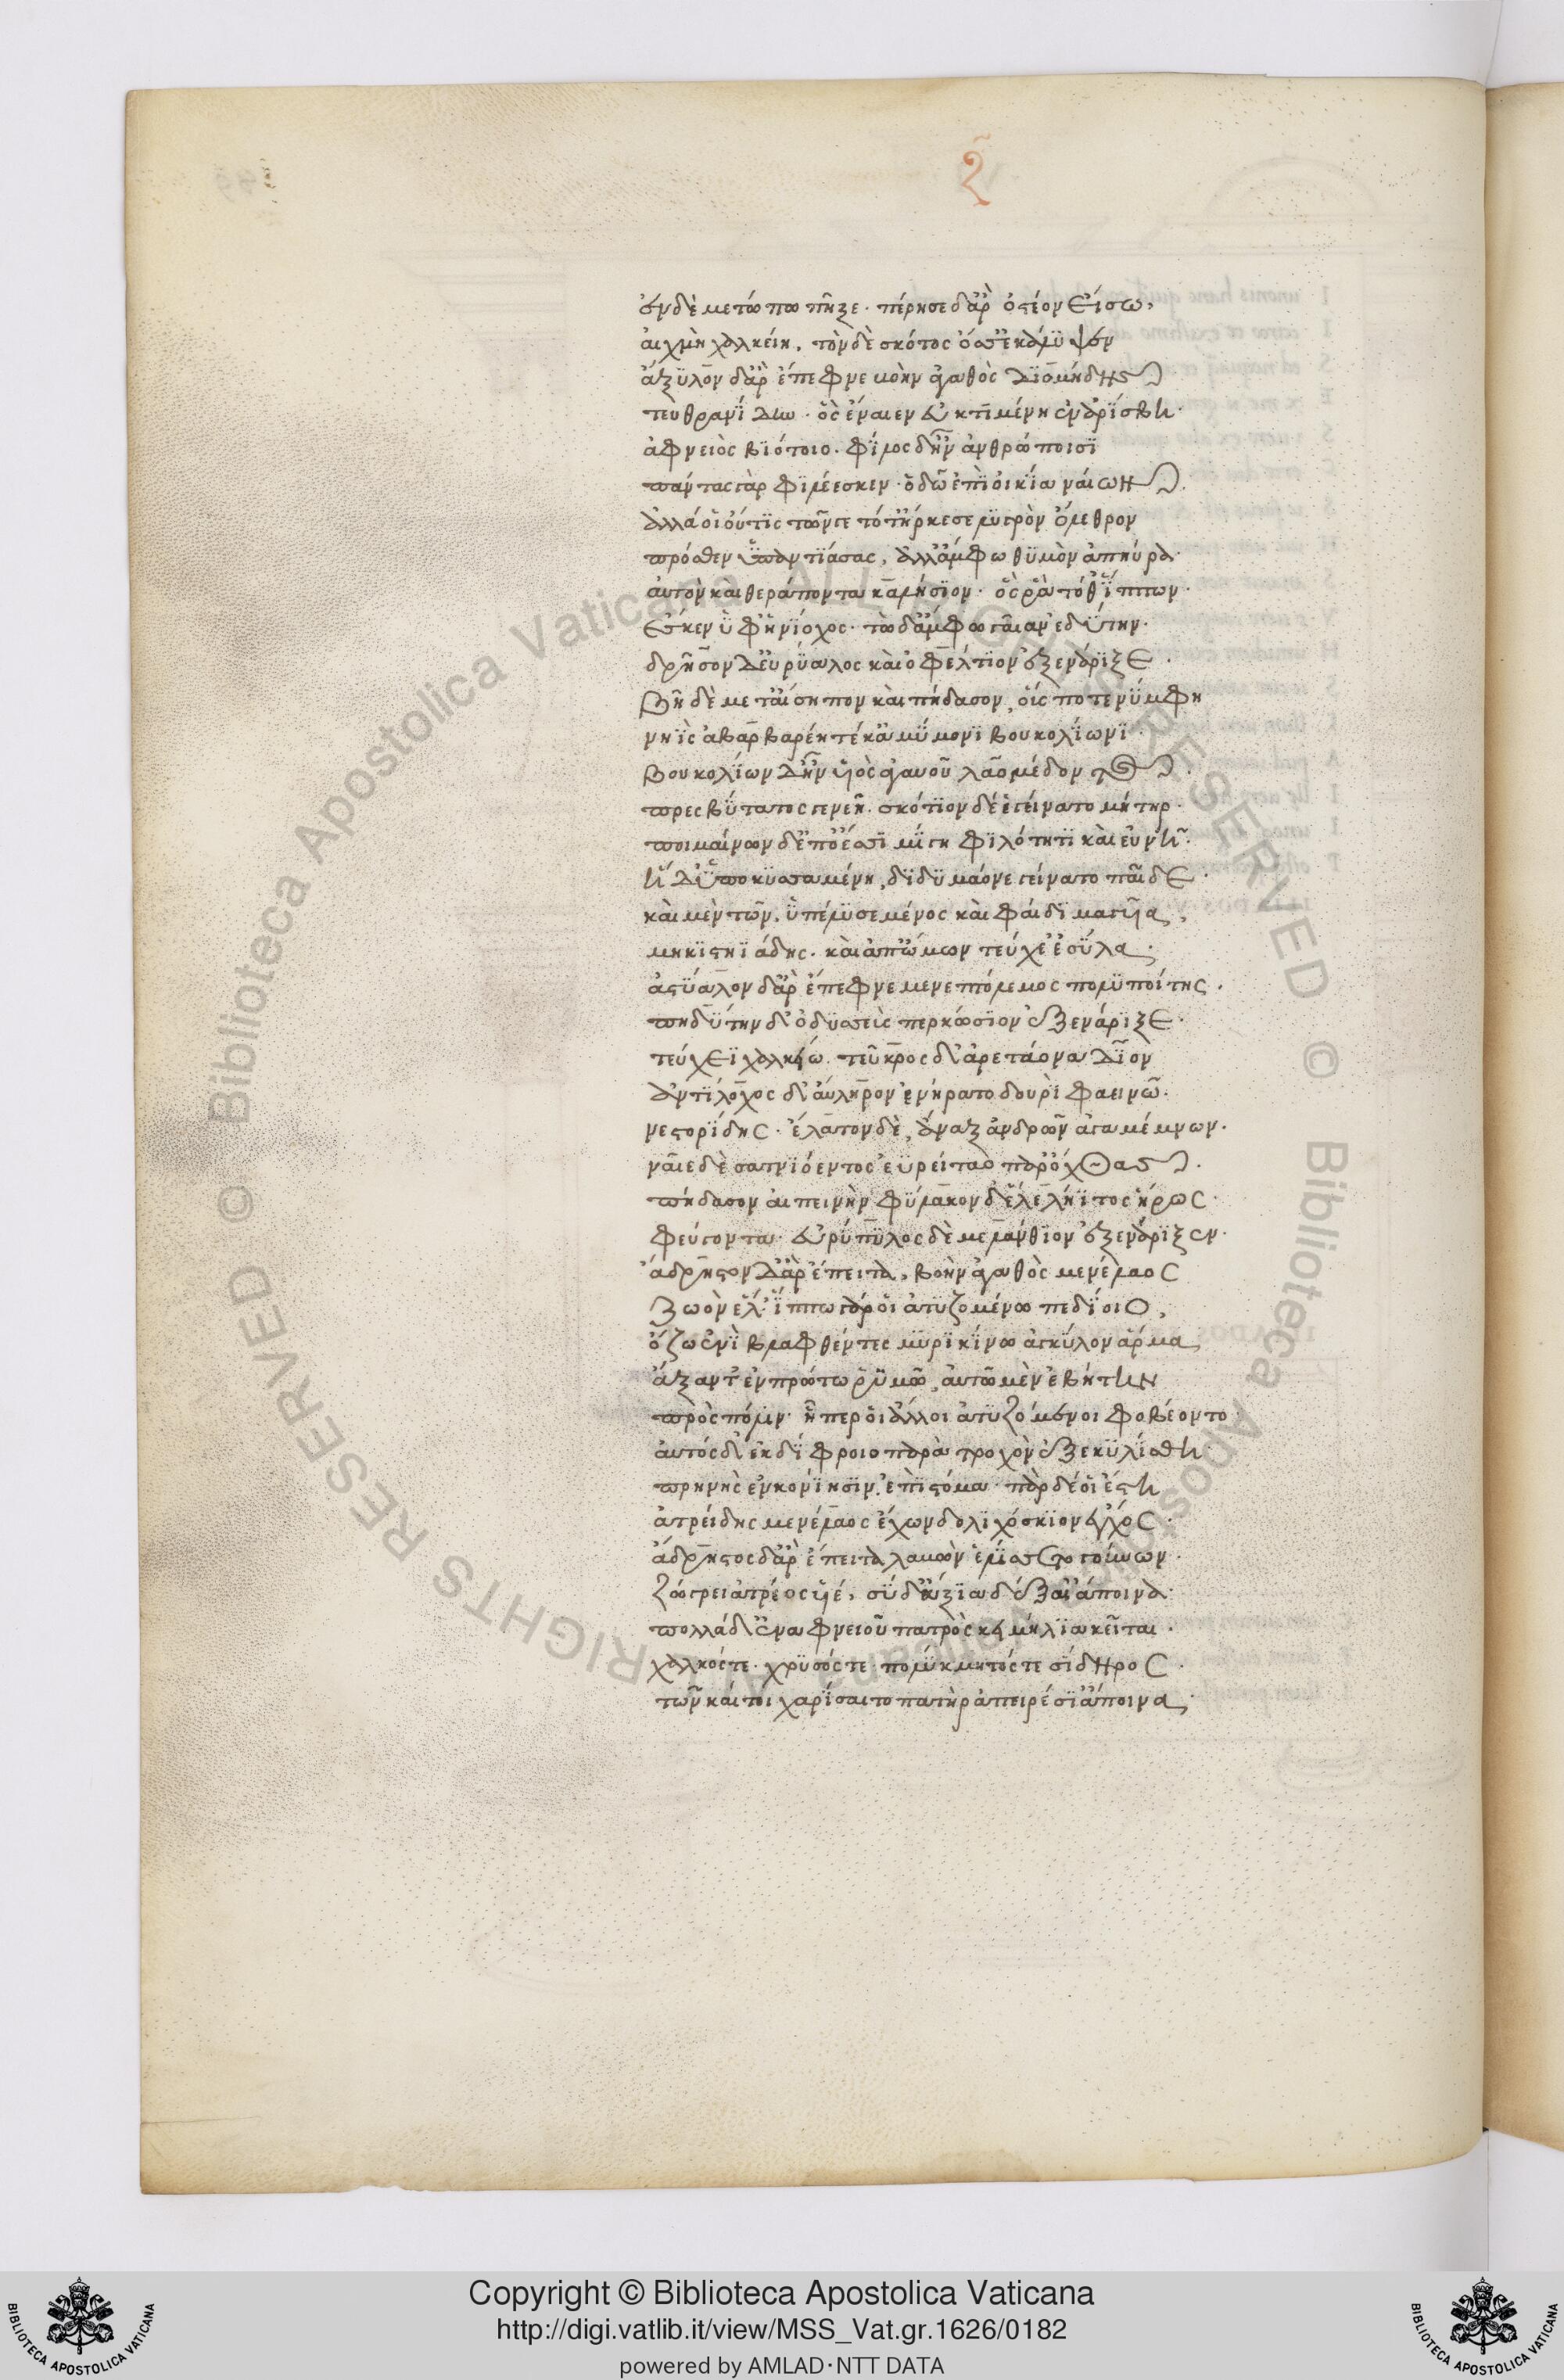 ἐν δὲ μετώπω πῆξε· πέρησε δ' ἂρ ὀστέον εἴσω,
αἰχμὴ χαλκείη, τὸν δὲ σκότος ὄσσε κάλυψεν
ἄξυλον δ' ἂρ ἔπεφνε βοὴν ἀγαθὸς διομήδης
τευθρανίδαο· ὃς ἔναιεν ἐϋκτιμένη ἐν ἀρίσβη·
ἀφνειὸς βιότοιο· φίλος δ' ἦν ἀνθρώποισι
πάντας γὰρ φιλέεσκεν· ὁδῶ ἔπι οἰκία ναίων.
ἀλλά οἱ οὔτις τῶνγε τότ' ἤρκεσε λυγρὸν ὄλεθρον
πρόσθεν ὑπαντιάσας, ἀλλ' ἄμφω θυμὸν ἀπηύρα·
αὐτὸν καὶ θεράποντα καλήσιον· ὅς ῥα τόθ' ἵππων·
ἔσκεν ὑφηνίοχος· τὼ δ' ἄμφω γαῖαν ἐδύτην·
δρῆσον δ' εὐρύαλος καὶ ὀφέλτιον ἐξενάριξε·
βῆ δὲ μετ' αἴσηπον καὶ πήδασον, οὕς ποτε νύμφη
νηῒς ἀβαρβαρέη τέκ' ἀμύμονι βουκολίωνι·
βουκολίων δ' ἦν υἱὸς ἀγαυοῦ λαομέδοντος.
πρεσβύτατος γενεῆ· σκότιον δέ ἑ γείνατο μήτηρ·
ποιμαίνων δ' ἐπ' ὄεσσι μίγη φιλότητι καὶ εὐνῆ·
ἡ δ' ὑποκυσαμένη, διδυμάονε γείνατο παῖδε·
καὶ μὲν τῶν, ὑπέλυσε μένος καὶ φαίδιμα γυῖα,
μηκιστηϊάδης· καὶ ἀπ' ὤμων τεύχε' ἐσύλα·
ἀστύαλον δ' ἂρ ἔπεφνε μενεπτόλεμος πολυποίτης·
πηδύτην δ' ὀδυσεὺς περκώσιον ἐξενάριξε·
τεύχεϊ χαλκείω· τεῦκρος δ' ἀρετάονα δῖον
ἀντίλοχος δ' ἄυληρον ἐνήρατο δουρὶ φαεινῶ·
νεστορίδης· ἔλατον δὲ, ἄναξ ἀνδρῶν ἀγαμέμνων·
ναῖε δὲ σατνιόεντος ἐϋρείταο παρ' ὄχθας.
πήδασον αἰπεινὴν φύλακον δ' ἕλε λήϊτος ἥρως·
φεύγοντα· εὐρύπυλος δὲ μελάνθιον ἐξενάριξεν·
ἄδρηστον δ' ἂρ ἔπειτα, βοὴν ἀγαθὸς μενέλαος
ζωὸν ἕλ'· ἵππω γάρ οἱ ἀτυζομένω πεδίοιο,
ὄζω ἐνὶ βλαφθέντες μυρικίνω ἀγκύλον ἅρμα
ἄξαντ' ἐν πρώτω ῥυμῶ, αὐτὼ μὲν ἐβήτην
πρὸς πόλιν· ᾗπερ οἱ ἄλλοι ἀτυζόμενοι φοβέοντο
αὐτός δ' ἐκ δίφροιο παρὰ τροχὸν ἐξεκυλίσθη·
πρηνὴς ἐν κονίησιν ἐπὶ στόμα· πὰρ δέ οἱ ἔστη
ἀτρείδης μενέλαος ἔχων δολιχόσκιον ἔγχος·
ἄδρηστος δ' ἂρ ἔπειτα λαβὼν ἐλίσσετο γούνων·
ζώγρει ἀτρέος υἱέ, σὺ δ' ἄξια δέξαι ἄποινα·
πολλὰ δ' ἐν ἀφνειοῦ πατρὸς κειμήλια κεῖται·
χαλκός τε· χρυσός τε πολύκμητός τε σίδηρος·
τῶν καί τοι χαρίσαιτο πατὴρ ἀπειρέσι' ἄποινα
Biblioteca Apostolica Vaticana. ALL RIGHTS RESERVED ©
Copyright © Biblioteca Apostolica Vaticana
http://digi.vatlib.it/view/MSS_Vat.gr.1626/0182
powered by AMLAD·NTT DATA
BIBLIOTECA APOSTOLICA VATICANA
BIBLIOTECA APOSTOLICA VATICANA